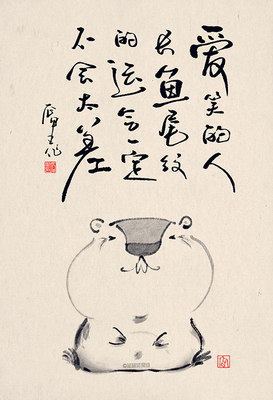 爱笑的人
长鱼尾纹
的运气一定
不会太差